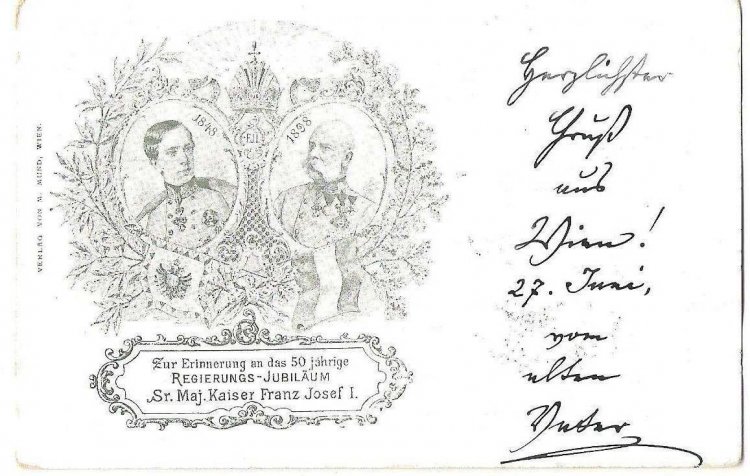 VERLAG VON M. MUND, WIEN.
1848
1898
FJI
Zur Erinnerung an das 50 jährige
REGIERUNGS-JUBILÄUM
Sr. Maj. Kaiser Franz Josef I.
Herzlichster
Gruß
aus
Wien!
27. Juni,
vom
alten
Vater